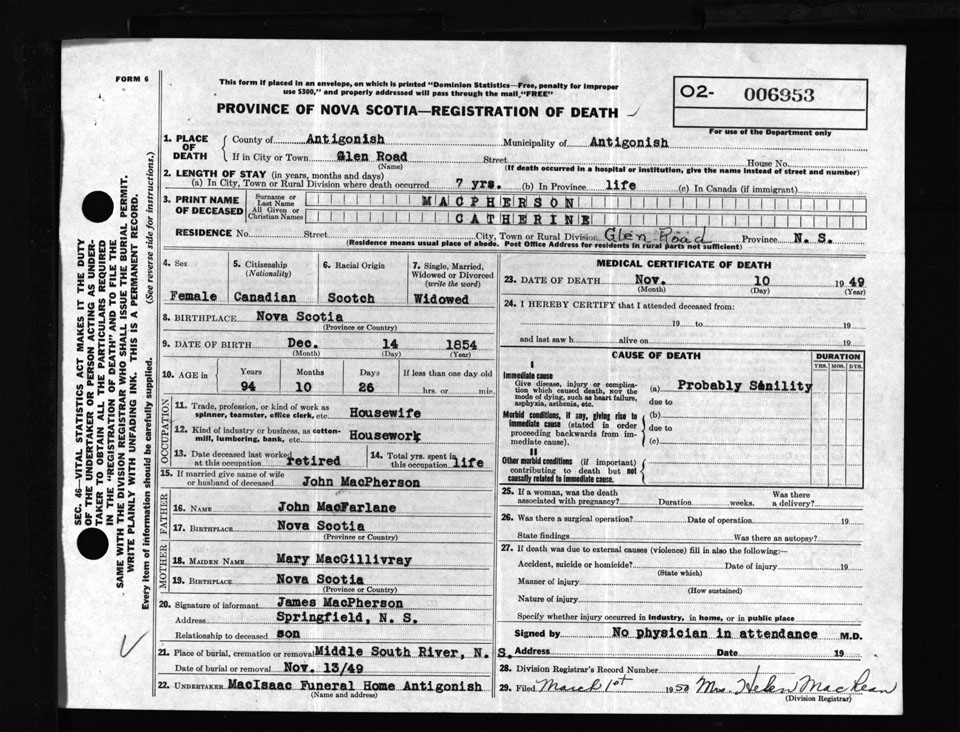 FORM 6
This form if placed in an envelope, on which is printed "Dominion Statistics—Free, penalty for improper
use $300," and properly addressed will pass through the mail "FREE"
PROVINCE OF NOVA SCOTIA—REGISTRATION OF DEATH
O2- 006953
For use of the Department only
1. PLACE OF DEATH
County of Antigonish Municipality of Antigonish
If in City or Town Glen Road Street House No.
(Name) (If death occurred in a hospital or institution, give the name instead of street and number)
2. LENGTH OF STAY (in years, months and days)
(a) In City, Town or Rural Division where death occurred 7 yrs. (b) In Province life (c) In Canada (if immigrant)
3. PRINT NAME OF DECEASED
Surname or Last Name MACPHERSON
All Given or Christian Names CATHERINE
RESIDENCE No. Street City, Town or Rural Division Glen Road Province N. S.
(Residence means usual place of abode. Post Office Address for residents in rural parts not sufficient)
4. Sex
Female
5. Citizenship
(Nationality)
Canadian
6. Racial Origin
Scotch
7. Single, Married,
Widowed or Divorced
(write the word)
Widowed
8. BIRTHPLACE Nova Scotia
(Province or Country)
9. DATE OF BIRTH Dec. 14 1854
(Month) (Day) (Year)
10. AGE in
Years Months Days If less than one day old
94 10 26 hrs. or min.
OCCUPATION
11. Trade, profession, or kind of work as
spinner, teamster, office clerk, etc. Housewife
12. Kind of industry or business, as cotton-
mill, lumbering, bank, etc. Housework
13. Date deceased last worked
at this occupation retired
14. Total yrs. spent in
this occupation life
15. If married give name of wife
or husband of deceased John MacPherson
FATHER
16. NAME John MacFarlane
17. BIRTHPLACE Nova Scotia
(Province or Country)
MOTHER
18. MAIDEN NAME Mary MacGillivray
19. BIRTHPLACE Nova Scotia
(Province or Country)
20. Signature of informant James MacPherson
Address Springfield, N. S.
Relationship to deceased son
21. Place of burial, cremation or removal Middle South River, N. S.
Date of burial or removal Nov. 13/49
22. UNDERTAKER MacIsaac Funeral Home Antigonish
(Name and address)
MEDICAL CERTIFICATE OF DEATH
23. DATE OF DEATH Nov. 10 1949
(Month) (Day) (Year)
24. I HEREBY CERTIFY that I attended deceased from:
19 to 19
and last saw h alive on 19
CAUSE OF DEATH
DURATION
YRS. MOS. DYS.
I
Immediate cause
Give disease, injury or complica-
tion which caused death, NOT the
mode of dying, such as heart failure,
asphyxia, asthenia, etc.
(a) Probably Senility
due to
Morbid conditions, if any, giving rise to
immediate cause (stated in order
proceeding backwards from im-
mediate cause).
(b)
due to
(c)
II
Other morbid conditions (if important)
contributing to death but not
causally related to immediate cause.
25. If a woman, was the death
associated with pregnancy? Duration weeks. Was there
a delivery?
26. Was there a surgical operation? Date of operation 19
State findings Was there an autopsy?
27. If death was due to external causes (violence) fill in also the following:—
Accident, suicide or homicide? Date of injury 19
(State which)
Manner of injury
(How sustained)
Nature of injury
Specify whether injury occurred in industry, in home, or in public place
Signed by No physician in attendance M.D.
Address Date 19
28. Division Registrar's Record Number
29. Filed March 1st 1950 Mrs. Helen MacLean
(Division Registrar)
SEC. 46—VITAL STATISTICS ACT MAKES IT THE DUTY
OF THE UNDERTAKER OR PERSON ACTING AS UNDER-
TAKER TO OBTAIN ALL THE PARTICULARS REQUIRED
IN THE "REGISTRATION OF DEATH" AND TO FILE THE
SAME WITH THE DIVISION REGISTRAR WHO SHALL ISSUE THE BURIAL PERMIT.
WRITE PLAINLY WITH UNFADING INK. THIS IS A PERMANENT RECORD.
Every item of information should be carefully supplied. (See reverse side for instructions.)